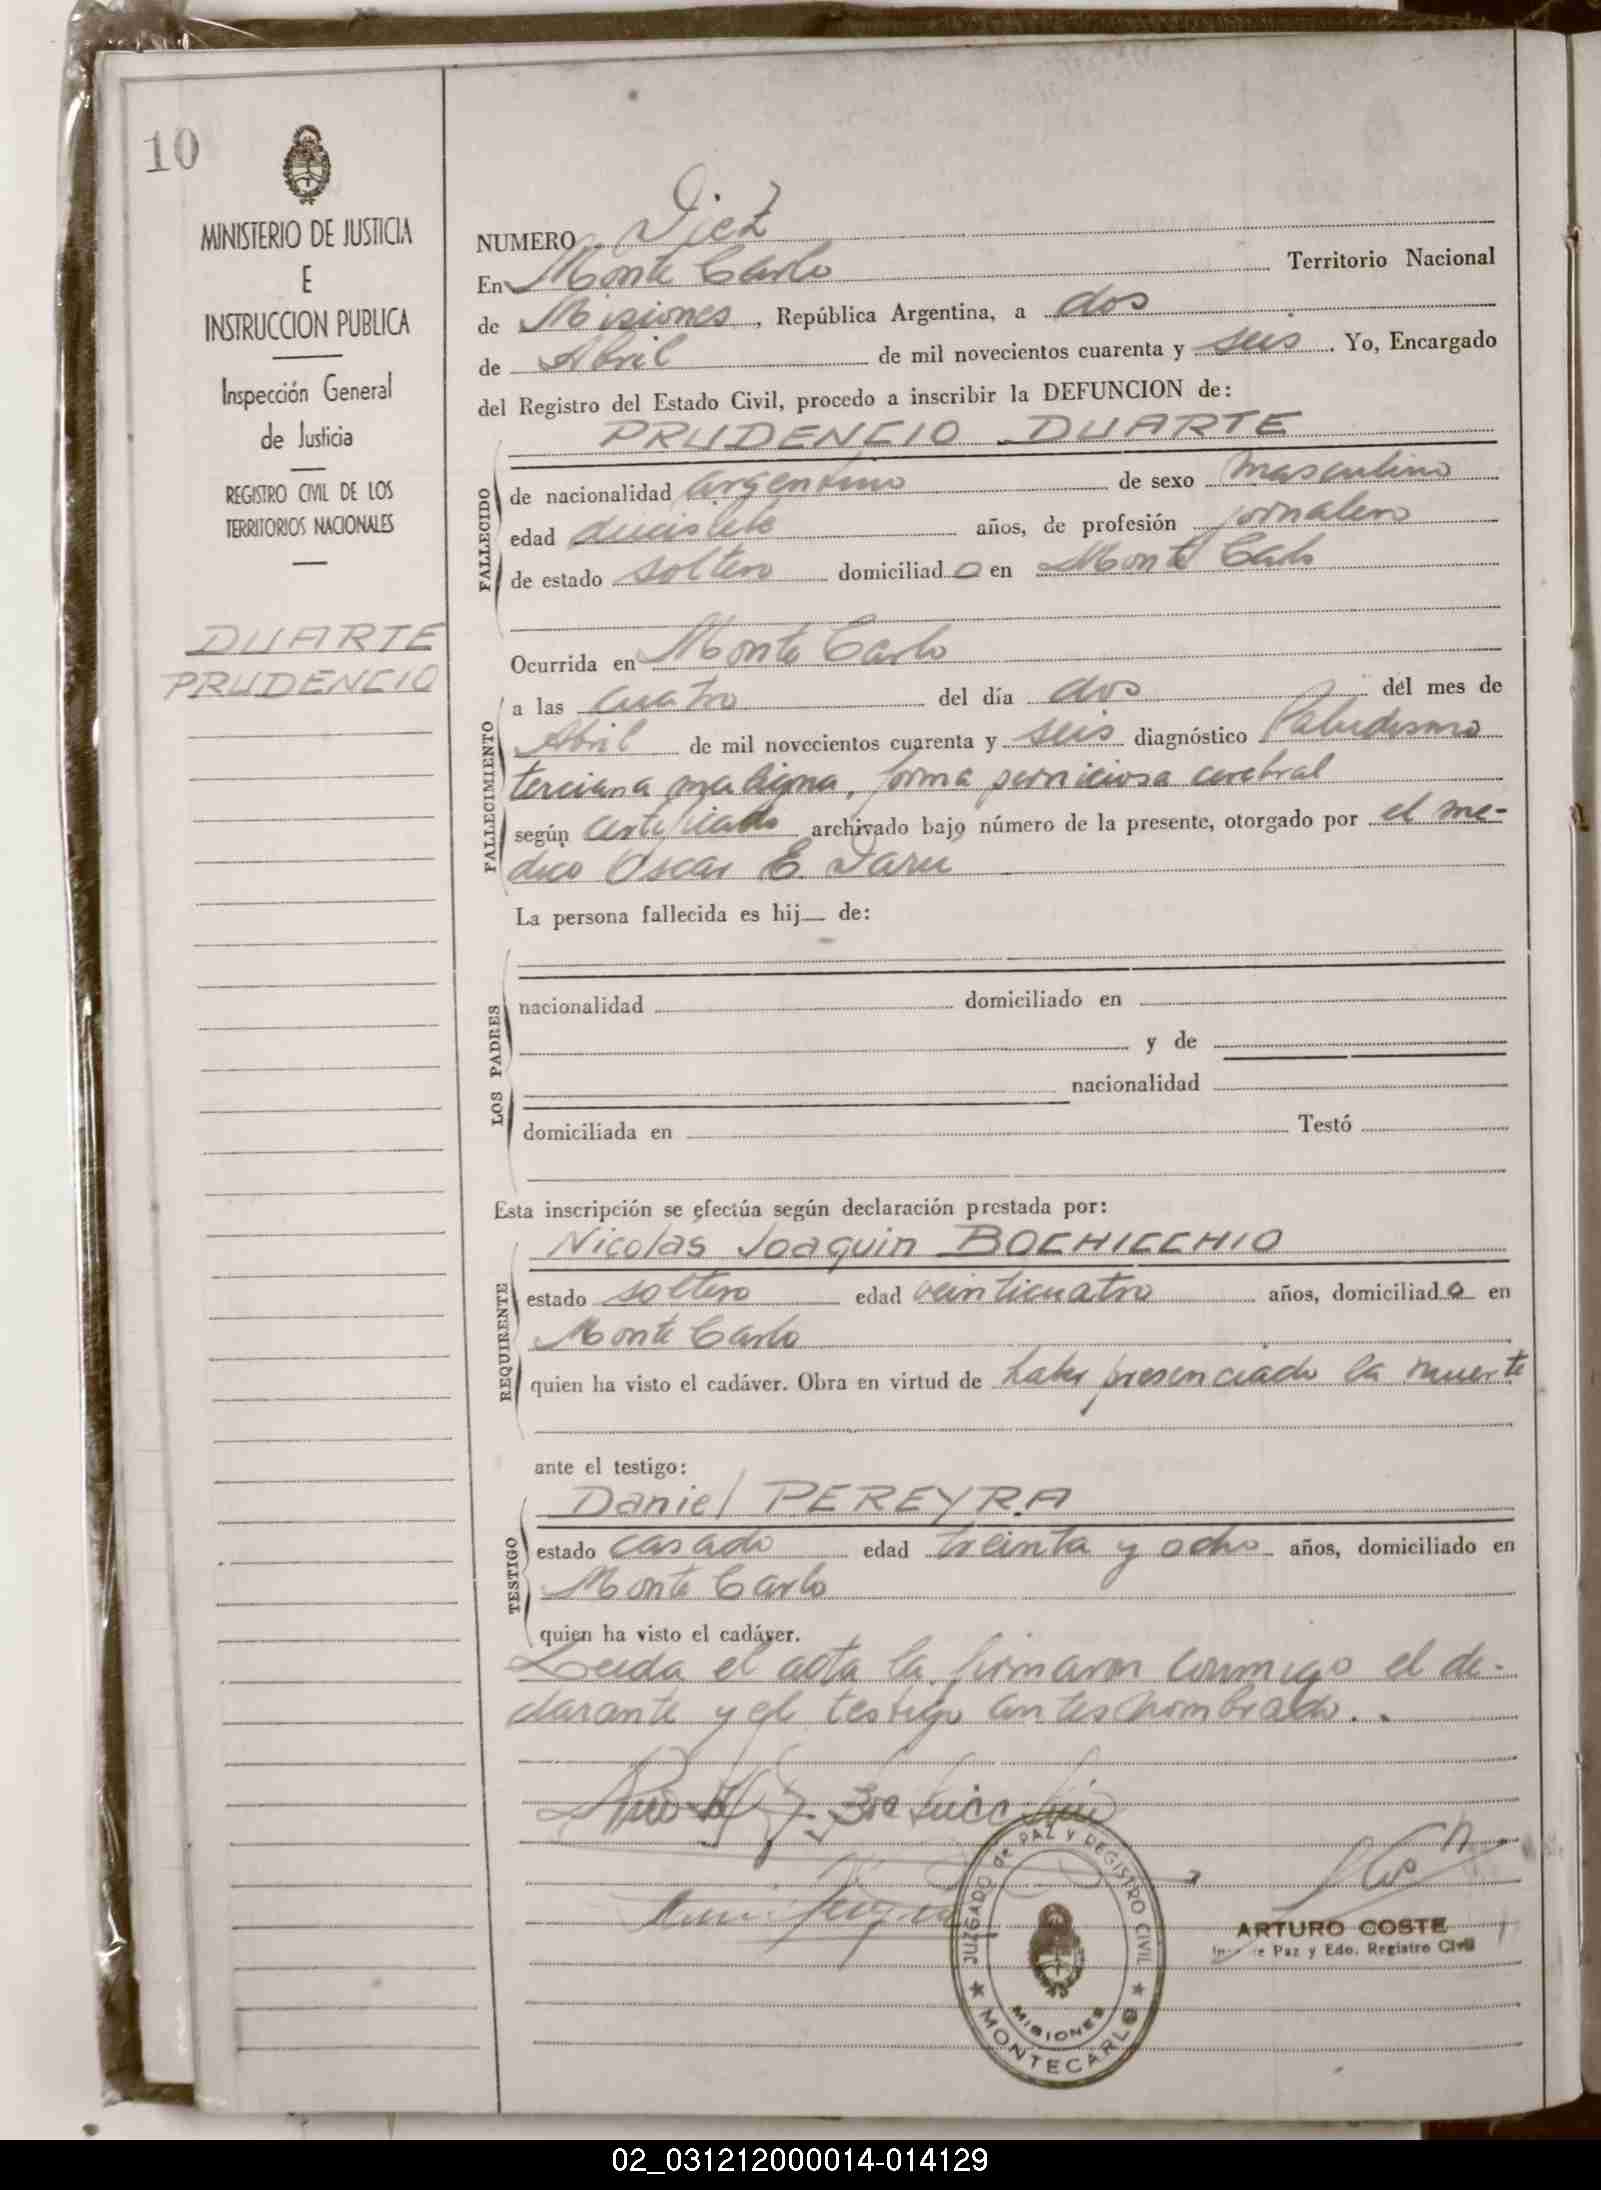 10
MINISTERIO DE JUSTICIA
E
INSTRUCCION PUBLICA
Inspección General
de Justicia
REGISTRO CIVIL DE LOS
TERRITORIOS NACIONALES
DUARTE
PRUDENCIO
NUMERO Diez
En Monte Carlo Territorio Nacional
de Misiones, República Argentina, a dos
de Abril de mil novecientos cuarenta y seis. Yo, Encargado
del Registro del Estado Civil, procedo a inscribir la DEFUNCION de:
PRUDENCIO DUARTE
FALLECIDO
de nacionalidad argentino de sexo masculino
edad diecisiete años, de profesión jornalero
de estado soltero domiciliado en Monte Carlo
Ocurrida en Monte Carlo
FALLECIMIENTO
a las cuatro del día dos del mes de
Abril de mil novecientos cuarenta y seis diagnóstico Paludismo
terciana maligna, forma perniciosa cerebral
según certificado archivado bajo número de la presente, otorgado por el me-
dico Oscar E.
La persona fallecida es hij— de:
LOS PADRES
nacionalidad domiciliado en
y de
nacionalidad
domiciliada en Testó
Esta inscripción se efectúa según declaración prestada por:
REQUIRENTE
Nicolás Joaquin BOCHICCHIO
estado soltero edad veinticuatro años, domiciliado en
Monte Carlo
quien ha visto el cadáver. Obra en virtud de haber presenciado la muerte
ante el testigo:
TESTIGO
Daniel PEREYRA
estado casado edad treinta y ocho años, domiciliado en
Monte Carlo
quien ha visto el cadáver.
Leida el acta la firmaron conmigo el de-
clarante y el testigo antes nombrado..
JUZGADO de PAZ Y REGISTRO CIVIL
MISIONES
★ MONTECARLO ★
ARTURO COSTE
Paz y Edo. Registro Civil
02_031212000014-014129